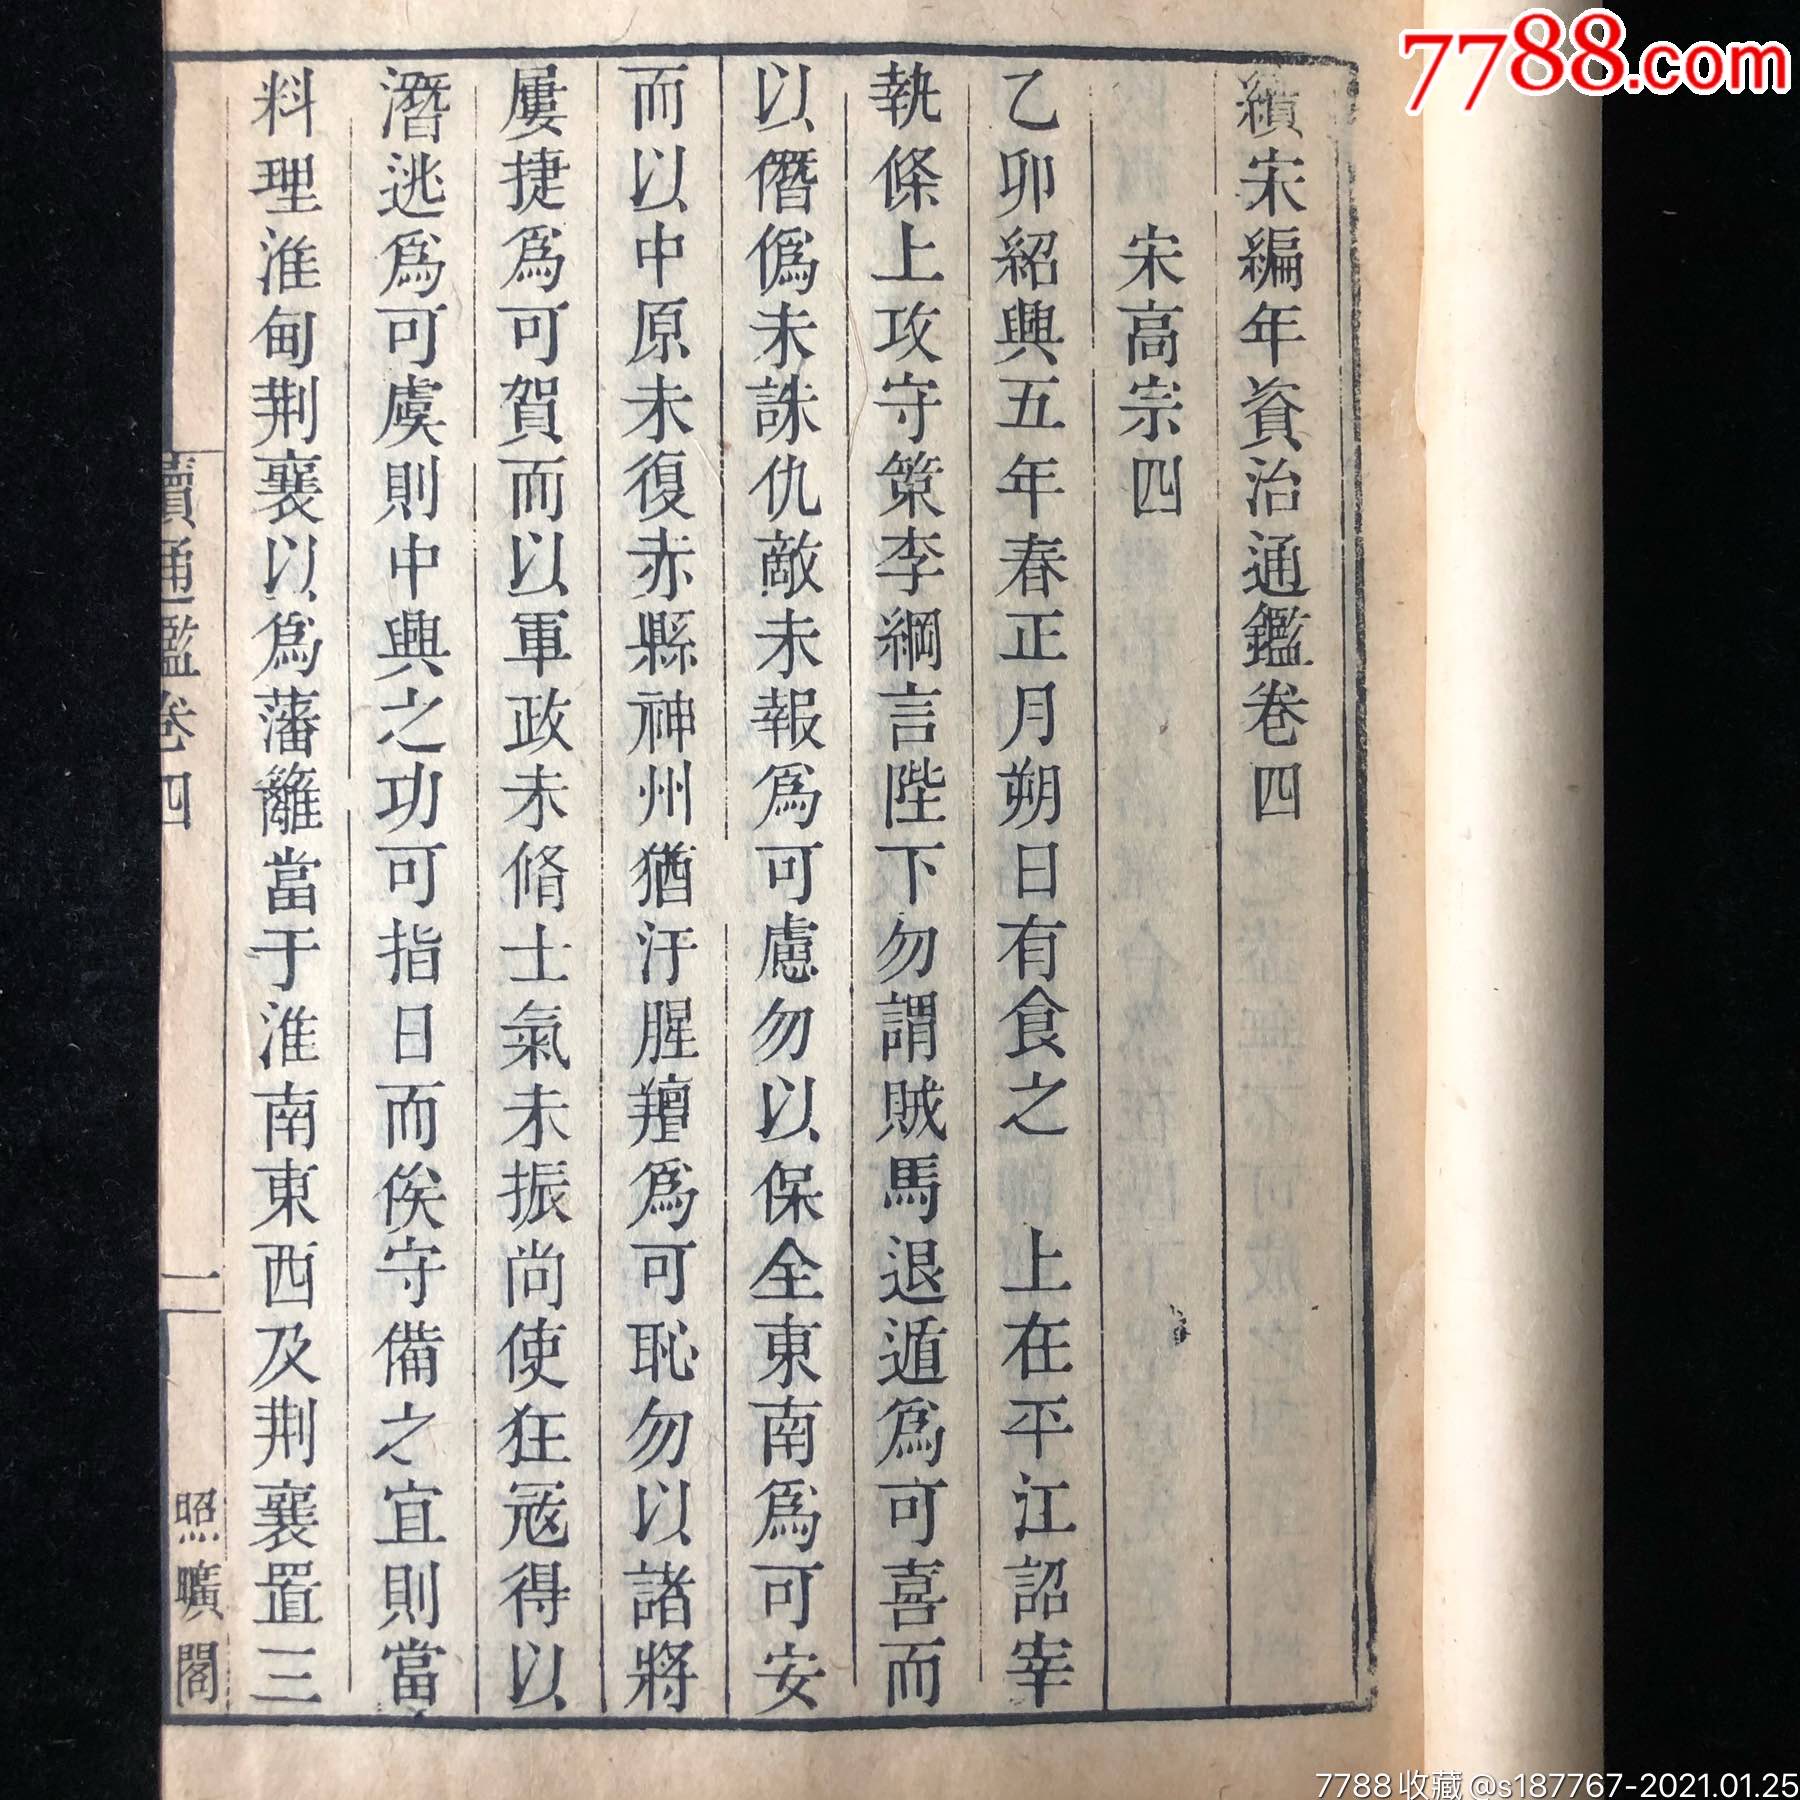 7788.com
續宋編年資治通鑑卷四
宋高宗四
乙卯紹興五年春正月朔日有食之 上在平江詔宰
執條上攻守策李綱言陛下勿謂賊馬退遁爲可喜而
以僭僞未誅仇敵未報爲可慮勿以保全東南爲可安
而以中原未復赤縣神州猶汙腥羶爲可恥勿以諸將
屢捷爲可賀而以軍政未脩士氣未振尚使狂寇得以
潛逃爲可虞則中興之功可指日而俟守備之宜則當
料理淮甸荆襄以爲藩籬當于淮南東西及荆襄置三
續通鑑卷四
一
照曠閣
7788收藏@s187767-2021.01.25